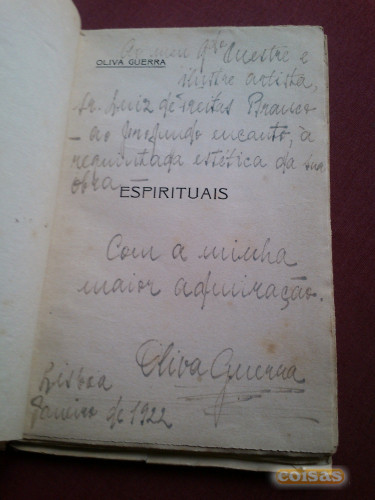 Ao meu qdo Mestre e
OLIVA GUERRA
ilustre artista,
Sr. Luiz de Freitas Branco
— ao profundo encanto, à
requintada estética da sua
obra —
ESPIRITUAIS
Com a minha
maior admiração.
Oliva Guerra
Lisboa
Janeiro de 1922
coisas